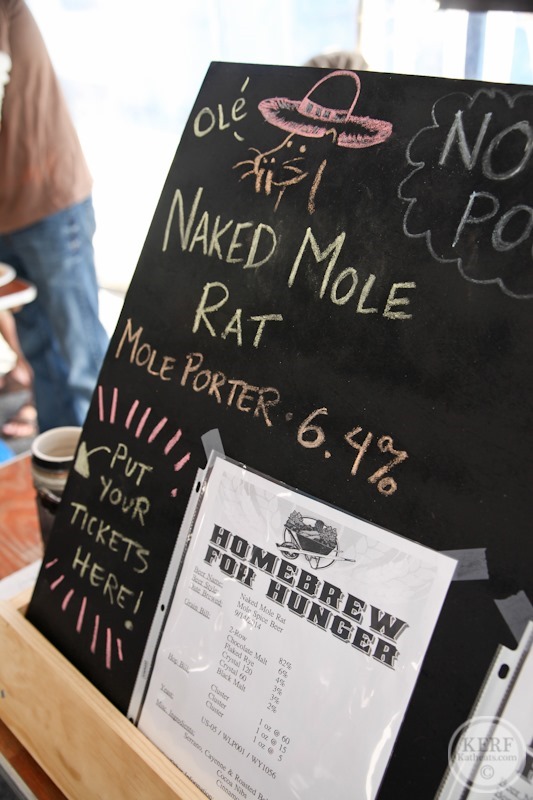 OLÉ
NO
PO
NAKED MOLE
RAT
MOLE PORTER · 6.4%
PUT
YOUR
TICKETS
HERE!
HOMEBREW
FOR HUNGER
Beer Name: Naked Mole Rat
Beer Style: Mole Spice Beer
Date Brewed:
Grain Bill:
2-Row 82%
Chocolate Malt 6%
Flaked Rye 4%
Crystal 120 3%
Crystal 60 3%
Black Malt 2%
Hop Bill:
Cluster 1 oz @ 60
Cluster 1 oz @ 15
Cluster 1 oz @ 5
Yeast: US-05 / WLP001 / WY1056
Misc. Ingredients:
Serrano, Cayenne & Roasted
Cocoa Nibs
Cinnamon
KERF
Katheats.com
©